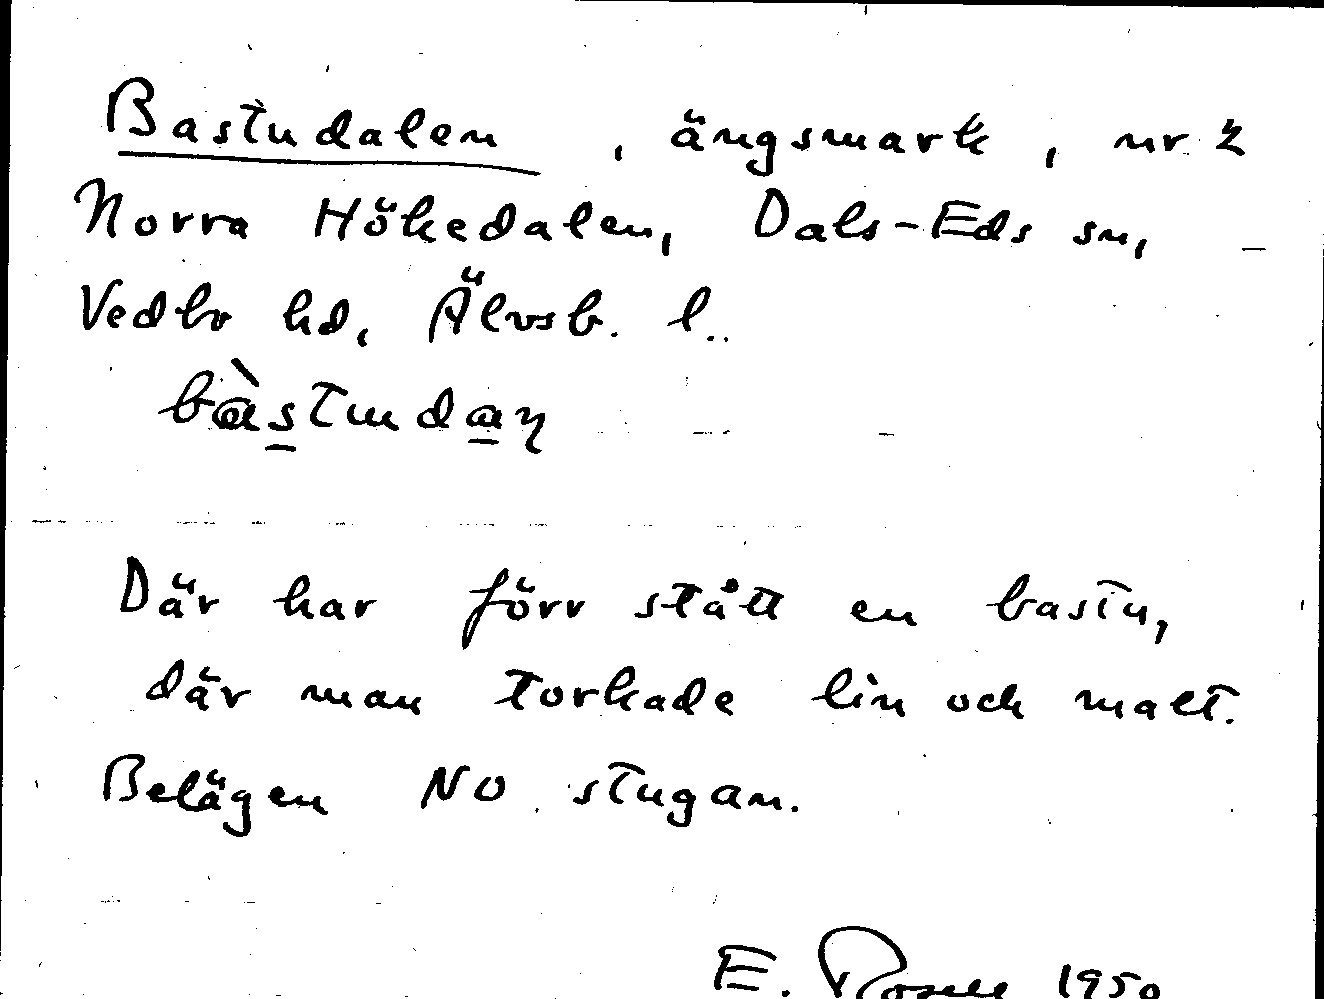 Bastudalen, ängsmark, nr 2
Norra Hökedalen, Dals-Eds sn,
Vedbo hd, Älvsb. l.
bàstudaη
Där har förr stått en bastu,
där man torkade lin och malt.
Belägen NO stugan.
E. Rosell 1950